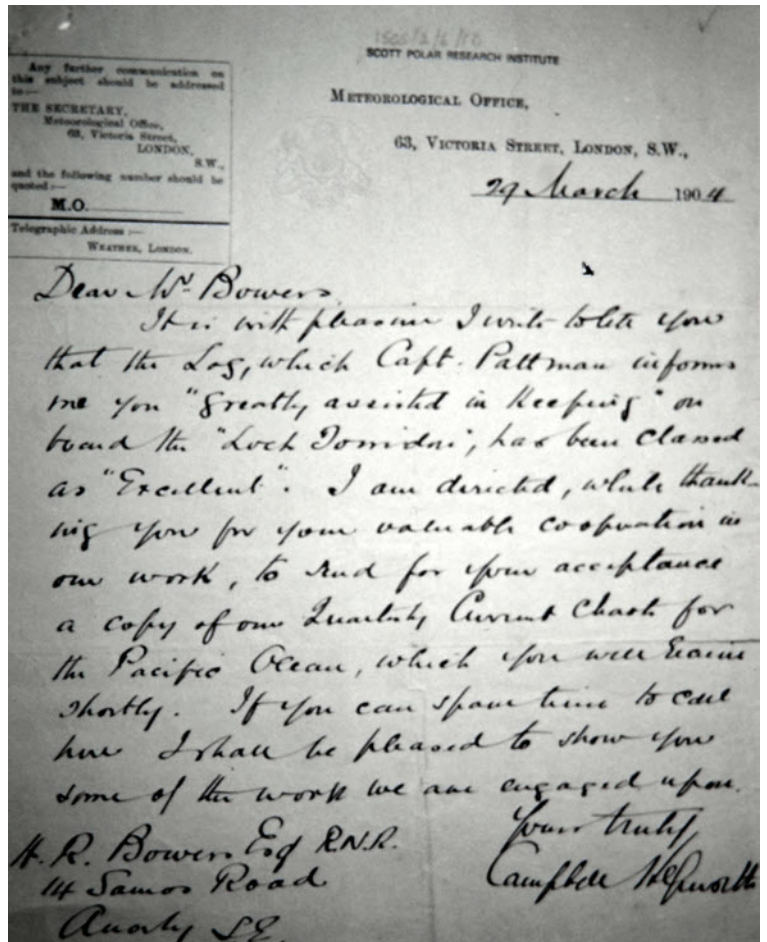 1505/2/6/10
SCOTT POLAR RESEARCH INSTITUTE
Any further communication on
this subject should be addressed
to:—
THE SECRETARY,
Meteorological Office,
63, Victoria Street,
LONDON,
S.W.,
and the following number should be
quoted:—
M.O.
Telegraphic Address:—
WEATHER, LONDON.
METEOROLOGICAL OFFICE,
63, VICTORIA STREET, LONDON, S.W.,
29 March 1904
Dear Mr Bowers
It is with pleasure I write to you
that the Log, which Capt. Pattman informs
me you "greatly assisted in keeping" on
board the "Loch Torridon", has been classed
as "Excellent". I am directed, while thank-
ing you for your valuable cooperation in
our work, to send for your acceptance
a copy of our Quarterly Current Charts for
the Pacific Ocean, which you will receive
shortly. If you can spare time to call
here I shall be pleased to show you
some of the work we are engaged upon.
Yours truly
Campbell Hepworth
H. R. Bowers Esq R.N.R.
14 Samos Road
Anerly S.E.